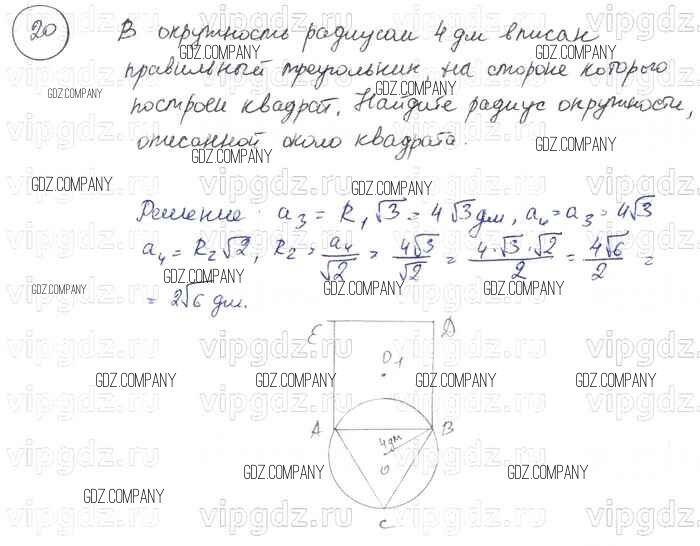 20
В окружность радиусом 4 дм вписан
правильный треугольник, на стороне которого
построен квадрат. Найдите радиус окружности,
описанной около квадрата.
Решение: a₃ = R₁√3 = 4√3 дм, a₄ = a₃ = 4√3
a₄ = R₂√2, R₂ = a₄/√2 = 4√3/√2 = 4·√3·√2/2 = 4√6/2 =
= 2√6 дм.
E D
O₁
A B
4 дм
O
C
GDZ.COMPANY
vipgdz.ru